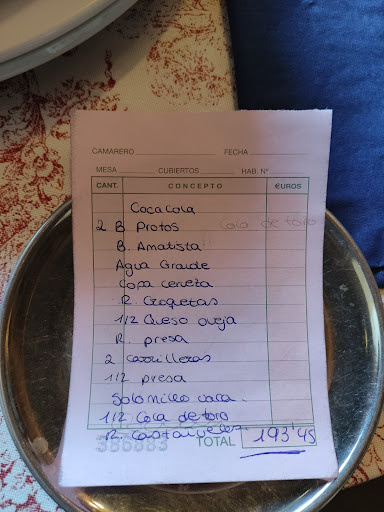 CAMARERO FECHA
MESA CUBIERTOS HAB. Nº
CANT. CONCEPTO €UROS
Coca cola
2 B Protos Cola de toro
B. Amatista
Agua Grande
Copa cerveza
R. Croquetas
1/2 Queso oveja
R. presa
2 carrilleras
1/2 presa
Solomillo vaca.
1/2 Cola de toro
R.
386883 TOTAL 193'45